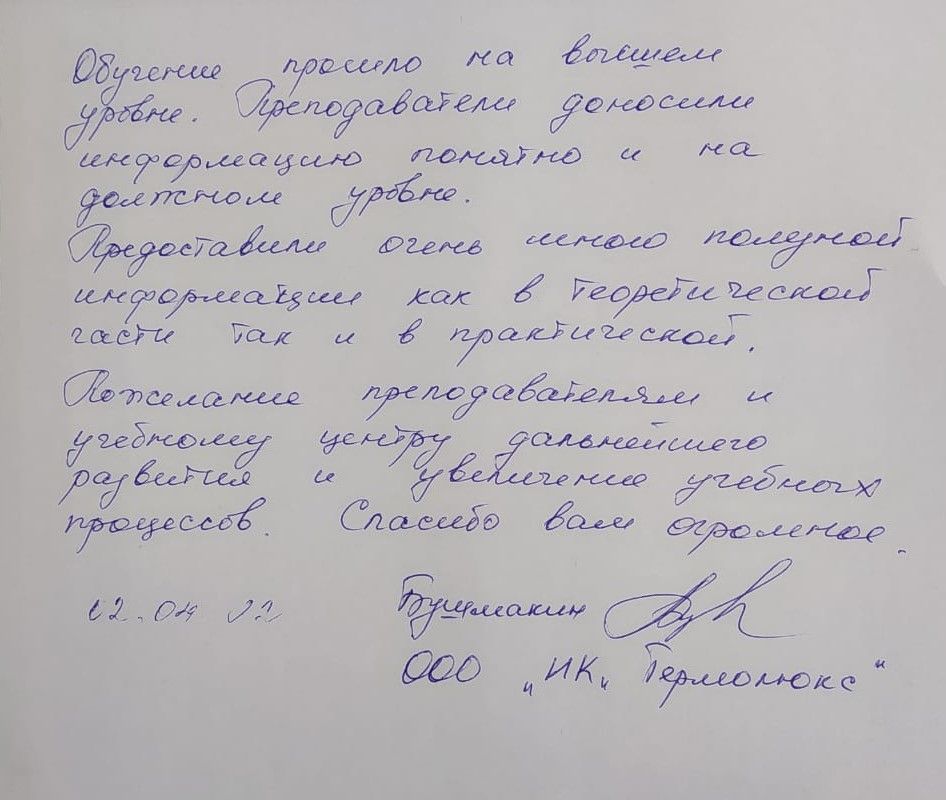 Обучение прошло на высшем
уровне. Преподаватели доносили
информацию понятно и на
должном уровне.
Предоставили очень много полезной
информации как в теоретической
части так и в практической.
Пожелание преподавателям и
учебному центру дальнейшего
развития и увеличение учебных
процессов. Спасибо вам огромное.
12.04 22 Бушмакин
ООО „ИК„ Термолюкс"